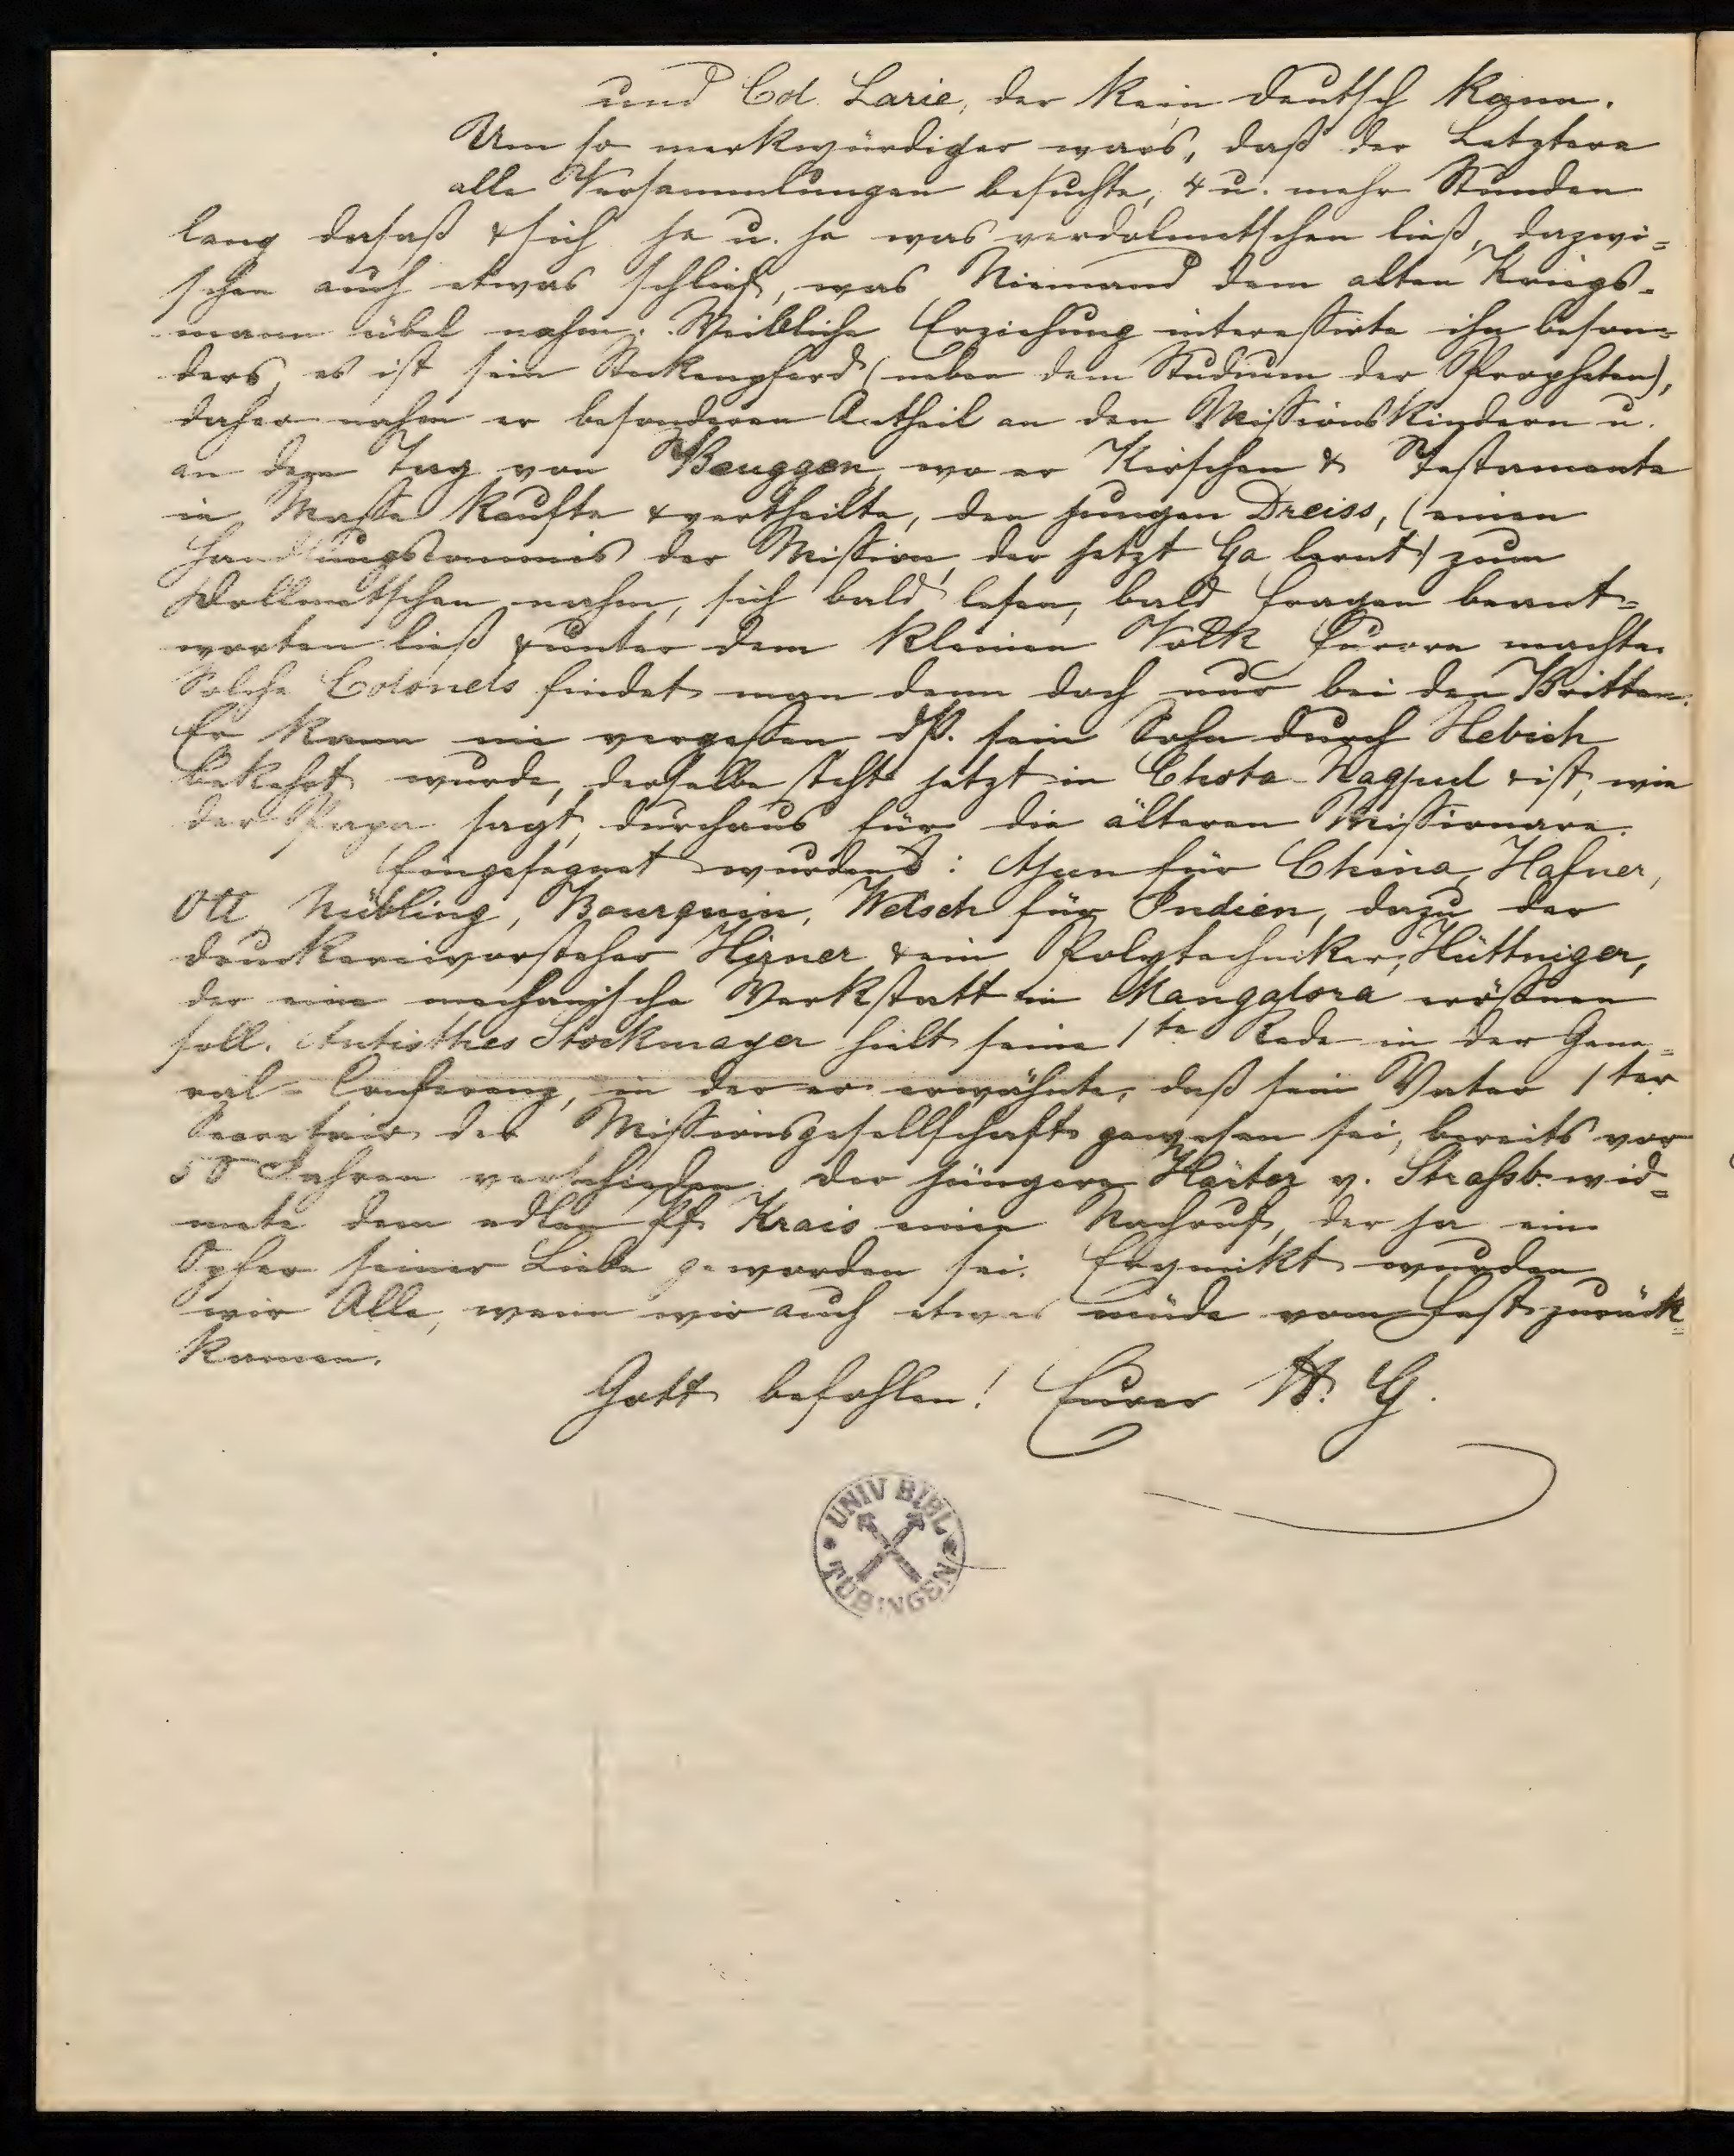 und Col. Larie, der kein deutsch kann.
Um so merkwürdiger wars, daß der Letztere
alle Versammlungen besuchte, 4 u. mehr Stunden
lang dasaß & sich je u. je was verdolmetschen ließ, dazwi=
schen auch etwas schlief, was Niemand dem alten Kriegs-
mann übel nahm. Weibliche Erziehung interessirte ihn beson=
ders, es ist sein Steckenpferd (neben dem Studium der Propheten),
daher nahm er besonderen Antheil an den Missionskindern u.
an dem Tag von Beuggen, wo er Kirschen & Testamente
in Masse kaufte & vertheilte, den jungen Dreiss, (einen
Handlungscommis der Mission, der jetzt Ga lernt) zum
Dollmetschen nahm, sich bald lesen, bald Fragen beant=
worten ließ & unter dem kleinen Volk Furore machte.
Solche Colonels findet man denn doch nur bei den Britten.
Er kann nie vergessen dß. sein Sohn durch Hebich
bekehrt wurde, derselbe steht jetzt in Chota-Nagpul & ist, wie
der Papa sagt, durchaus für die älteren Missionare.
Eingesegnet wurden: für China, Hafner,
Ott, Nübling, Bourquin, Welsch für Indien, dazu der
Druckereivorsteher Hirner & ein Polytechniker, Hüttniger,
der eine mechanische Werkstatt in Mangalora eröffnen
soll. Antisthes Stockmayer hielt seine 1te Rede in der Gene=
ral-Conferenz, in der er erwähnte, daß sein Vater 1ter
Secretair der Missionsgesellschaft gewesen sei, bereits vor
50 Jahren verschieden. Der jüngere Härter v. Strassb. wid=
mete dem edlen Pf. Krais einen Nachruf, der ja ein
Opfer seiner Liebe geworden sei. Erquickt wurden
wir Alle, wenn wir auch etwas müde vom Fest zurück=
kamen.
Gott befohlen! Eurer H. G.
UNIV BIBL
TÜBINGEN